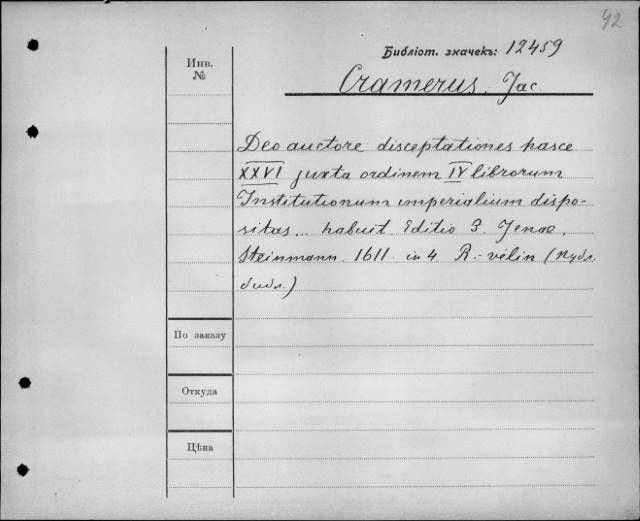 42
Библіот. значекъ: 12459
Инв.
№
Cramerus, Jac.
Deo auctore disceptationes hasce
XXVI juxta ordinem IV librorum
Institutionum imperialium dispo-
sitas... habuit Editio 3. Jenae,
Steinmann. 1611. in 4. R.-vélin (Нудл.
библ.)
По заказу
Откуда
Цѣна